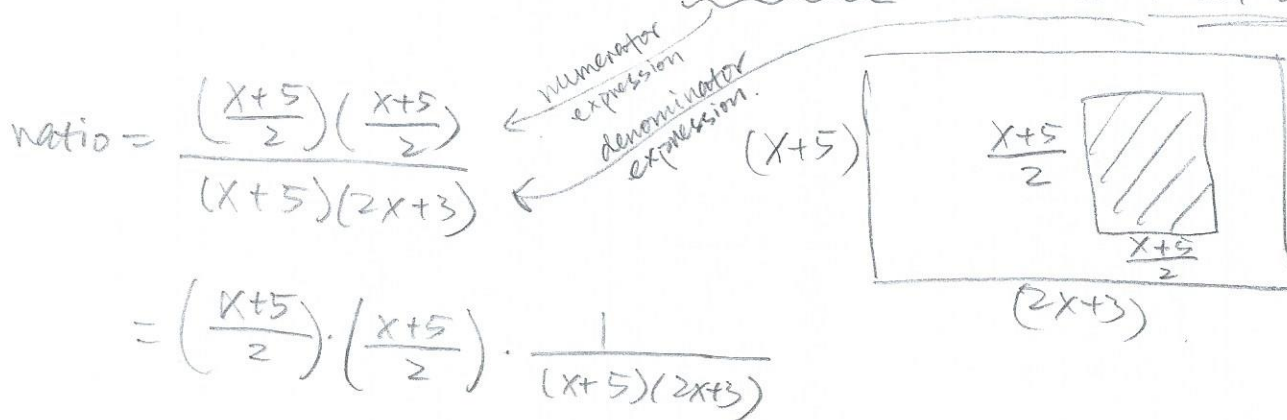 ratio = \frac{(\frac{x+5}{2})(\frac{x+5}{2})}{(x+5)(2x+3)}
numerator
expression
denominator
expression.
(x+5)
\frac{x+5}{2}
\frac{x+5}{2}
(2x+3)
= (\frac{x+5}{2}) \cdot (\frac{x+5}{2}) \cdot \frac{1}{(x+5)(2x+3)}